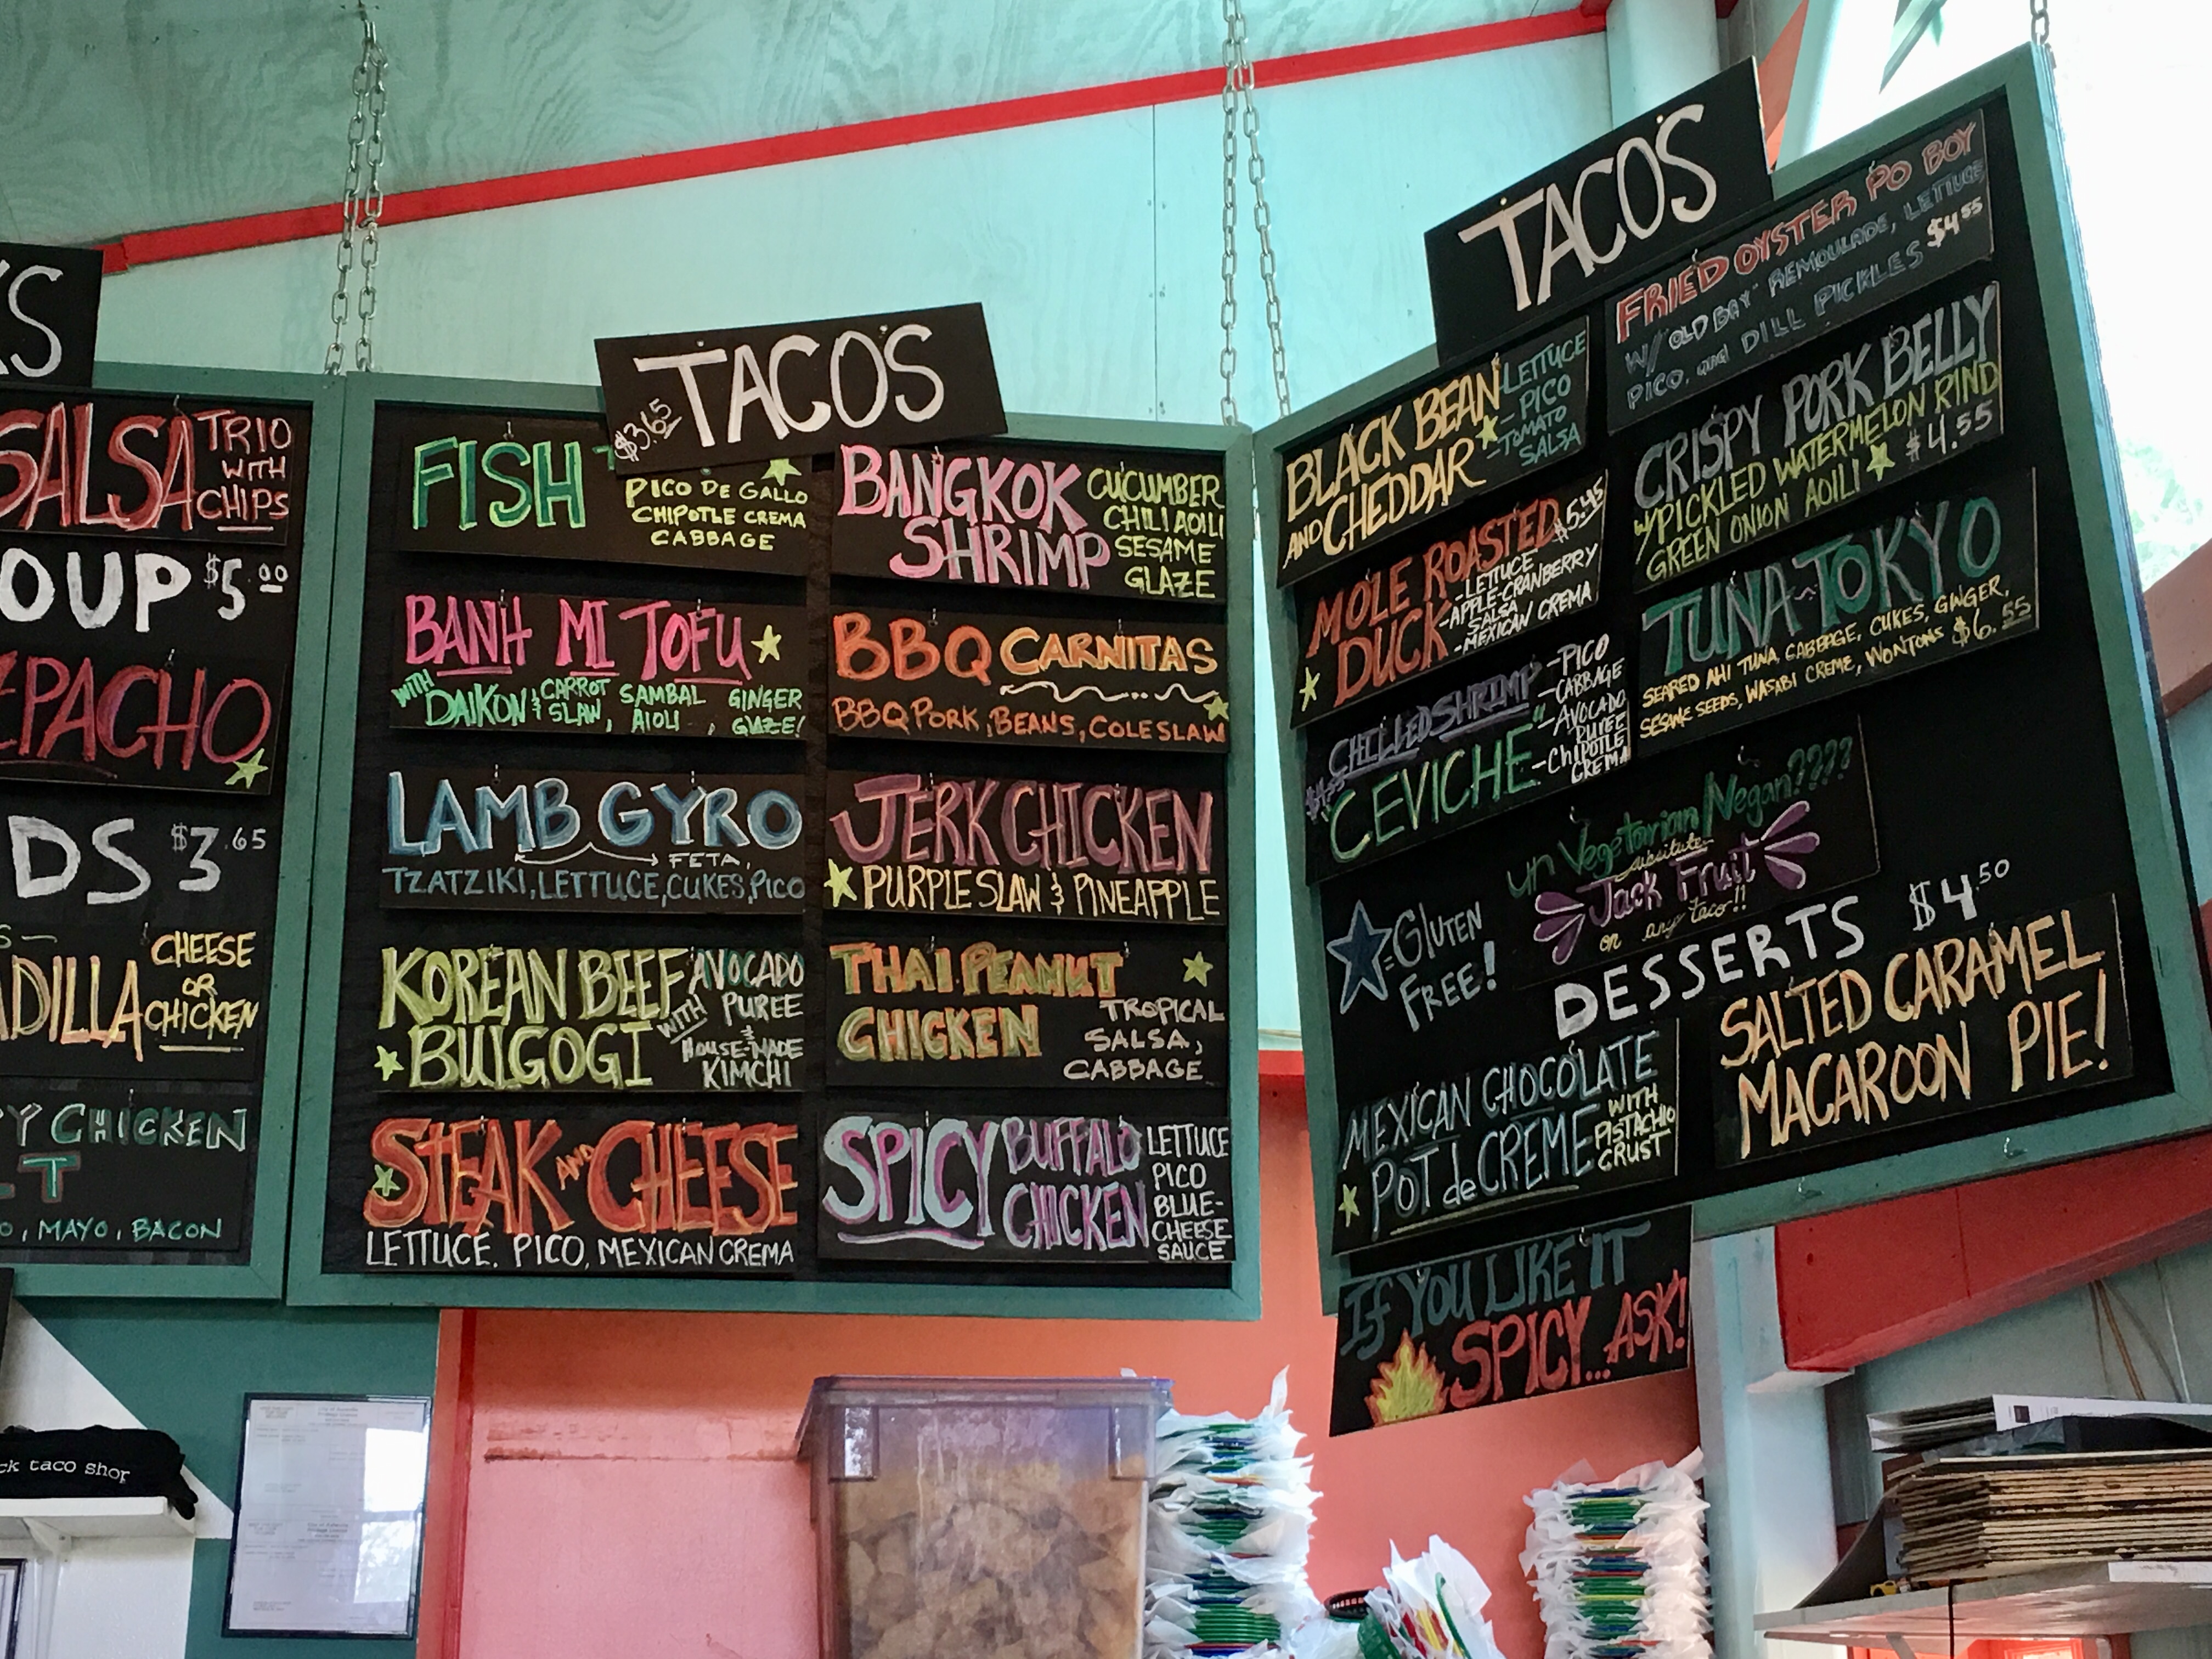 KS
SALSA
TRIO
WITH
CHIPS
OUP $5.00
PACHO
DS $3.65
ADILLA
CHEESE
OR
CHICKEN
Y CHICKEN
LT
O, MAYO, BACON
TACOS
$3.65
FISH
PICO DE GALLO
CHIPOTLE CREMA
CABBAGE
BANH MI TOFU
WITH DAIKON & CARROT SLAW, SAMBAL AIOLI, GINGER GLAZE!
LAMB GYRO
FETA,
TZATZIKI, LETTUCE, CUKES, PICO
KOREAN BEEF
BULGOGI
WITH
AVOCADO
PUREE
&
HOUSE-MADE
KIMCHI
STEAK AND CHEESE
LETTUCE, PICO, MEXICAN CREMA
BANGKOK
SHRIMP
CUCUMBER
CHILI AOILI
SESAME
GLAZE
BBQ CARNITAS
BBQ PORK, BEANS, COLESLAW
JERK CHICKEN
PURPLE SLAW & PINEAPPLE
THAI PEANUT
CHICKEN
TROPICAL
SALSA,
CABBAGE
SPICY BUFFALO
CHICKEN
LETTUCE
PICO
BLUE-
CHEESE
SAUCE
TACOS
BLACK BEAN
AND CHEDDAR
-LETTUCE
-PICO
-TOMATO
SALSA
MOLE ROASTED $5.45
DUCK
-LETTUCE
-APPLE-CRANBERRY
SALSA
-MEXICAN CREMA
CHILLED SHRIMP
CEVICHE
-PICO
-CABBAGE
-AVOCADO
PUREE
-CHIPOTLE
CREMA
FRIED OYSTER PO BOY
W/ "OLD BAY" REMOULADE, LETTUCE
PICO, and DILL PICKLES $4.55
CRISPY PORK BELLY
W/ PICKLED WATERMELON RIND
GREEN ONION AOILI $4.55
TUNA-TOKYO
SEARED AHI TUNA, CABBAGE, CUKES, GINGER,
SESAME SEEDS, WASABI CREME, WONTONS $6.55
un Vegetarian/Vegan????
substitute
Jack Fruit
on any taco!!
=GLUTEN
FREE!
DESSERTS $4.50
MEXICAN CHOCOLATE
POT de CREME
WITH
PISTACHIO
CRUST
SALTED CARAMEL
MACAROON PIE!
IF YOU LIKE IT
SPICY... ASK!
ck taco shop